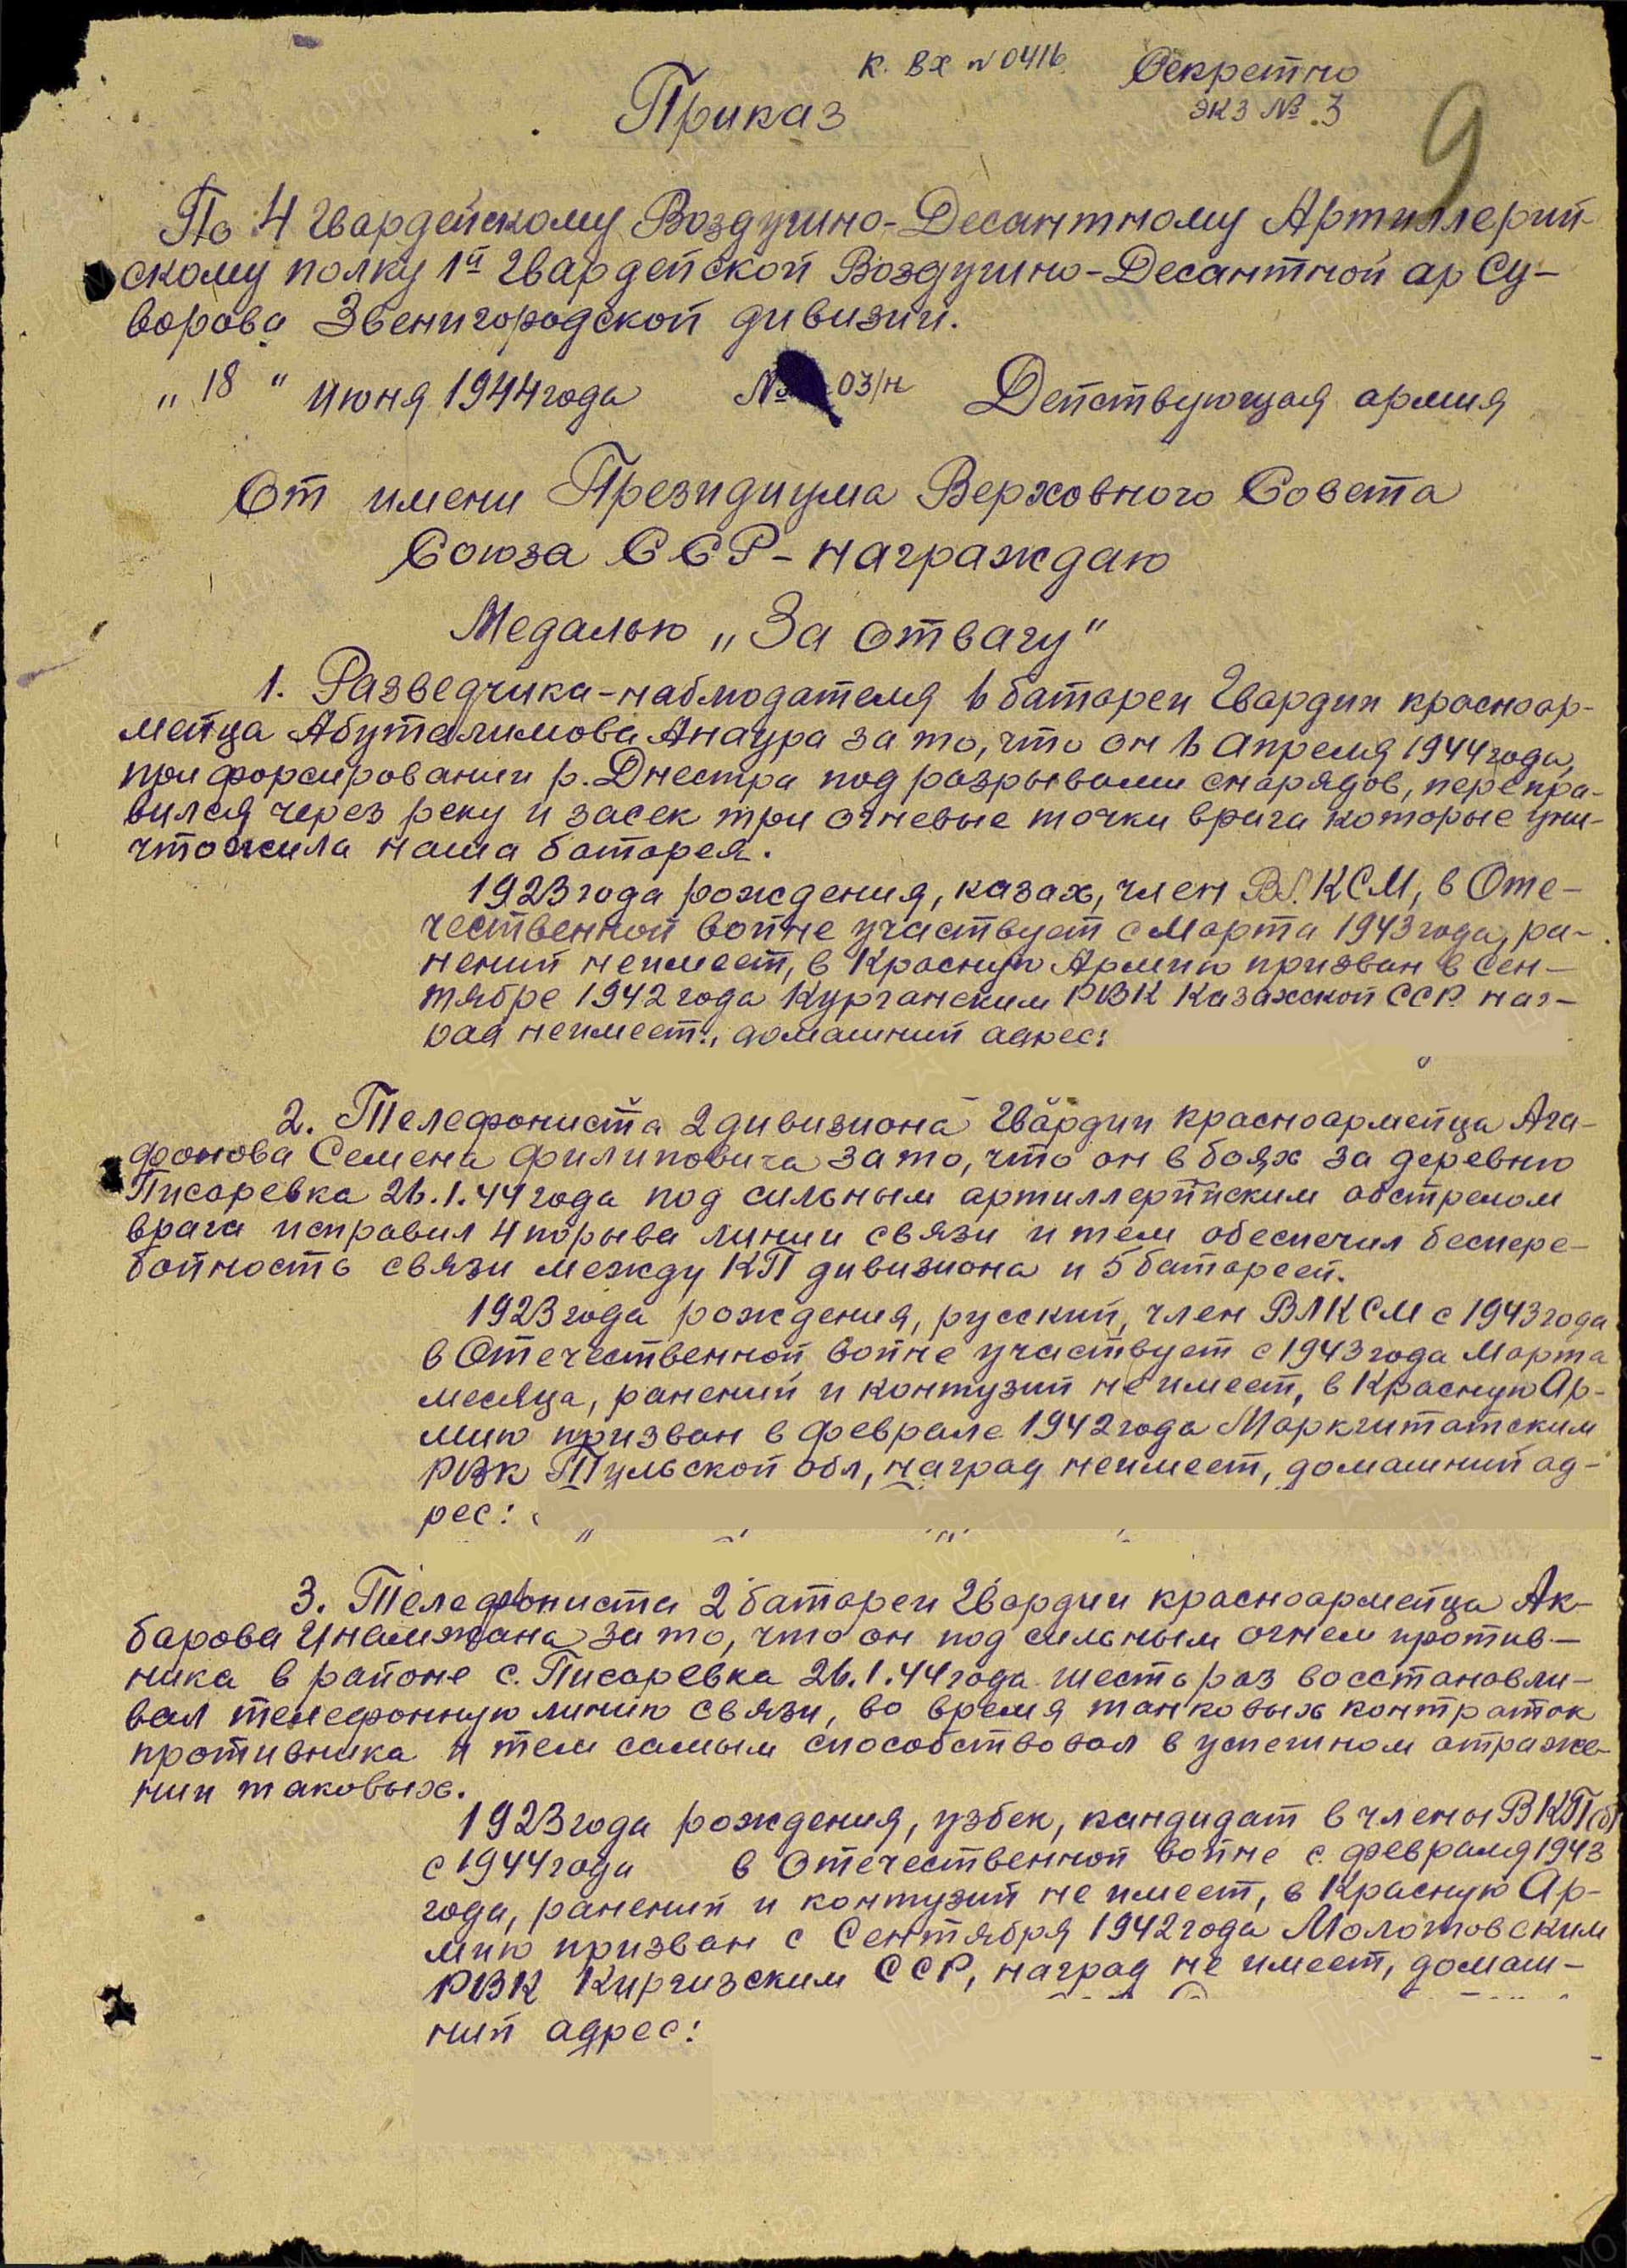 К. вх № 0416 Секретно
Приказ экз № 3
9
По 4 Гвардейскому Воздушно-Десантному Артиллерий-
скому полку 1й Гвардейской Воздушно-Десантной ор Су-
ворова Звенигородской дивизии.
„ 18 " июня 1944 года № 03/н Действующая армия
От имени Президиума Верховного Совета
Союза ССР - награждаю
Медалью „За отвагу"
1. Разведчика-наблюдателя 6 батареи Гвардии красноар-
мейца Абуталимова Анаура за то, что он 6 Апреля 1944 года,
при форсировании р. Днестра под разрывами снарядов, перепра-
вился через реку и засек три огневые точки врага которые уни-
чтожила наша батарея.
1923 года рождения, казах, член ВЛКСМ, в Оте-
чественной войне участвует с Марта 1943 года, ра-
нений неимеет, в Красную Армию призван в Сен-
тябре 1942 года Курганским РВК Казахской ССР. наг-
рад неимеет., домашний адрес:
2. Телефониста 2 дивизиона Гвардии красноармейца Ага-
фонова Семена Филиповича за то, что он в боях за деревню
Писаревка 26.1.44 года под сильным артиллерийским обстрелом
врага исправил 4 порыва линии связи и тем обеспечил беспере-
бойность связи между КП дивизиона и 5 батареей.
1923 года рождения, русский, член ВЛКСМ с 1943 года
в Отечественной войне участвует с 1943 года Марта
месяца, ранений и контузий не имеет, в Красную Ар-
мию призван в феврале 1942 года Маркштатским
РВК Тульской обл, наград неимеет, домашний ад-
рес:
3. Телефониста 2 батареи Гвардии красноармейца Ак-
барова Инамжана за то, что он под сильным огнем против-
ника в районе с. Писаревка 26.1.44 года шесть раз восстановли-
вал телефонную линию связи, во время танковых контратак
противника и тем самым способствовал в успешном отраже-
нии таковых.
1923 года рождения, узбек, кандидат в члены ВКП(б)
с 1944 года в Отечественной войне с февраля 1943
года, ранений и контузий не имеет, в Красную Ар-
мию призван с Сентября 1942 года Молотовским
РВК Киргизским ССР, наград не имеет, домаш-
ний адрес: